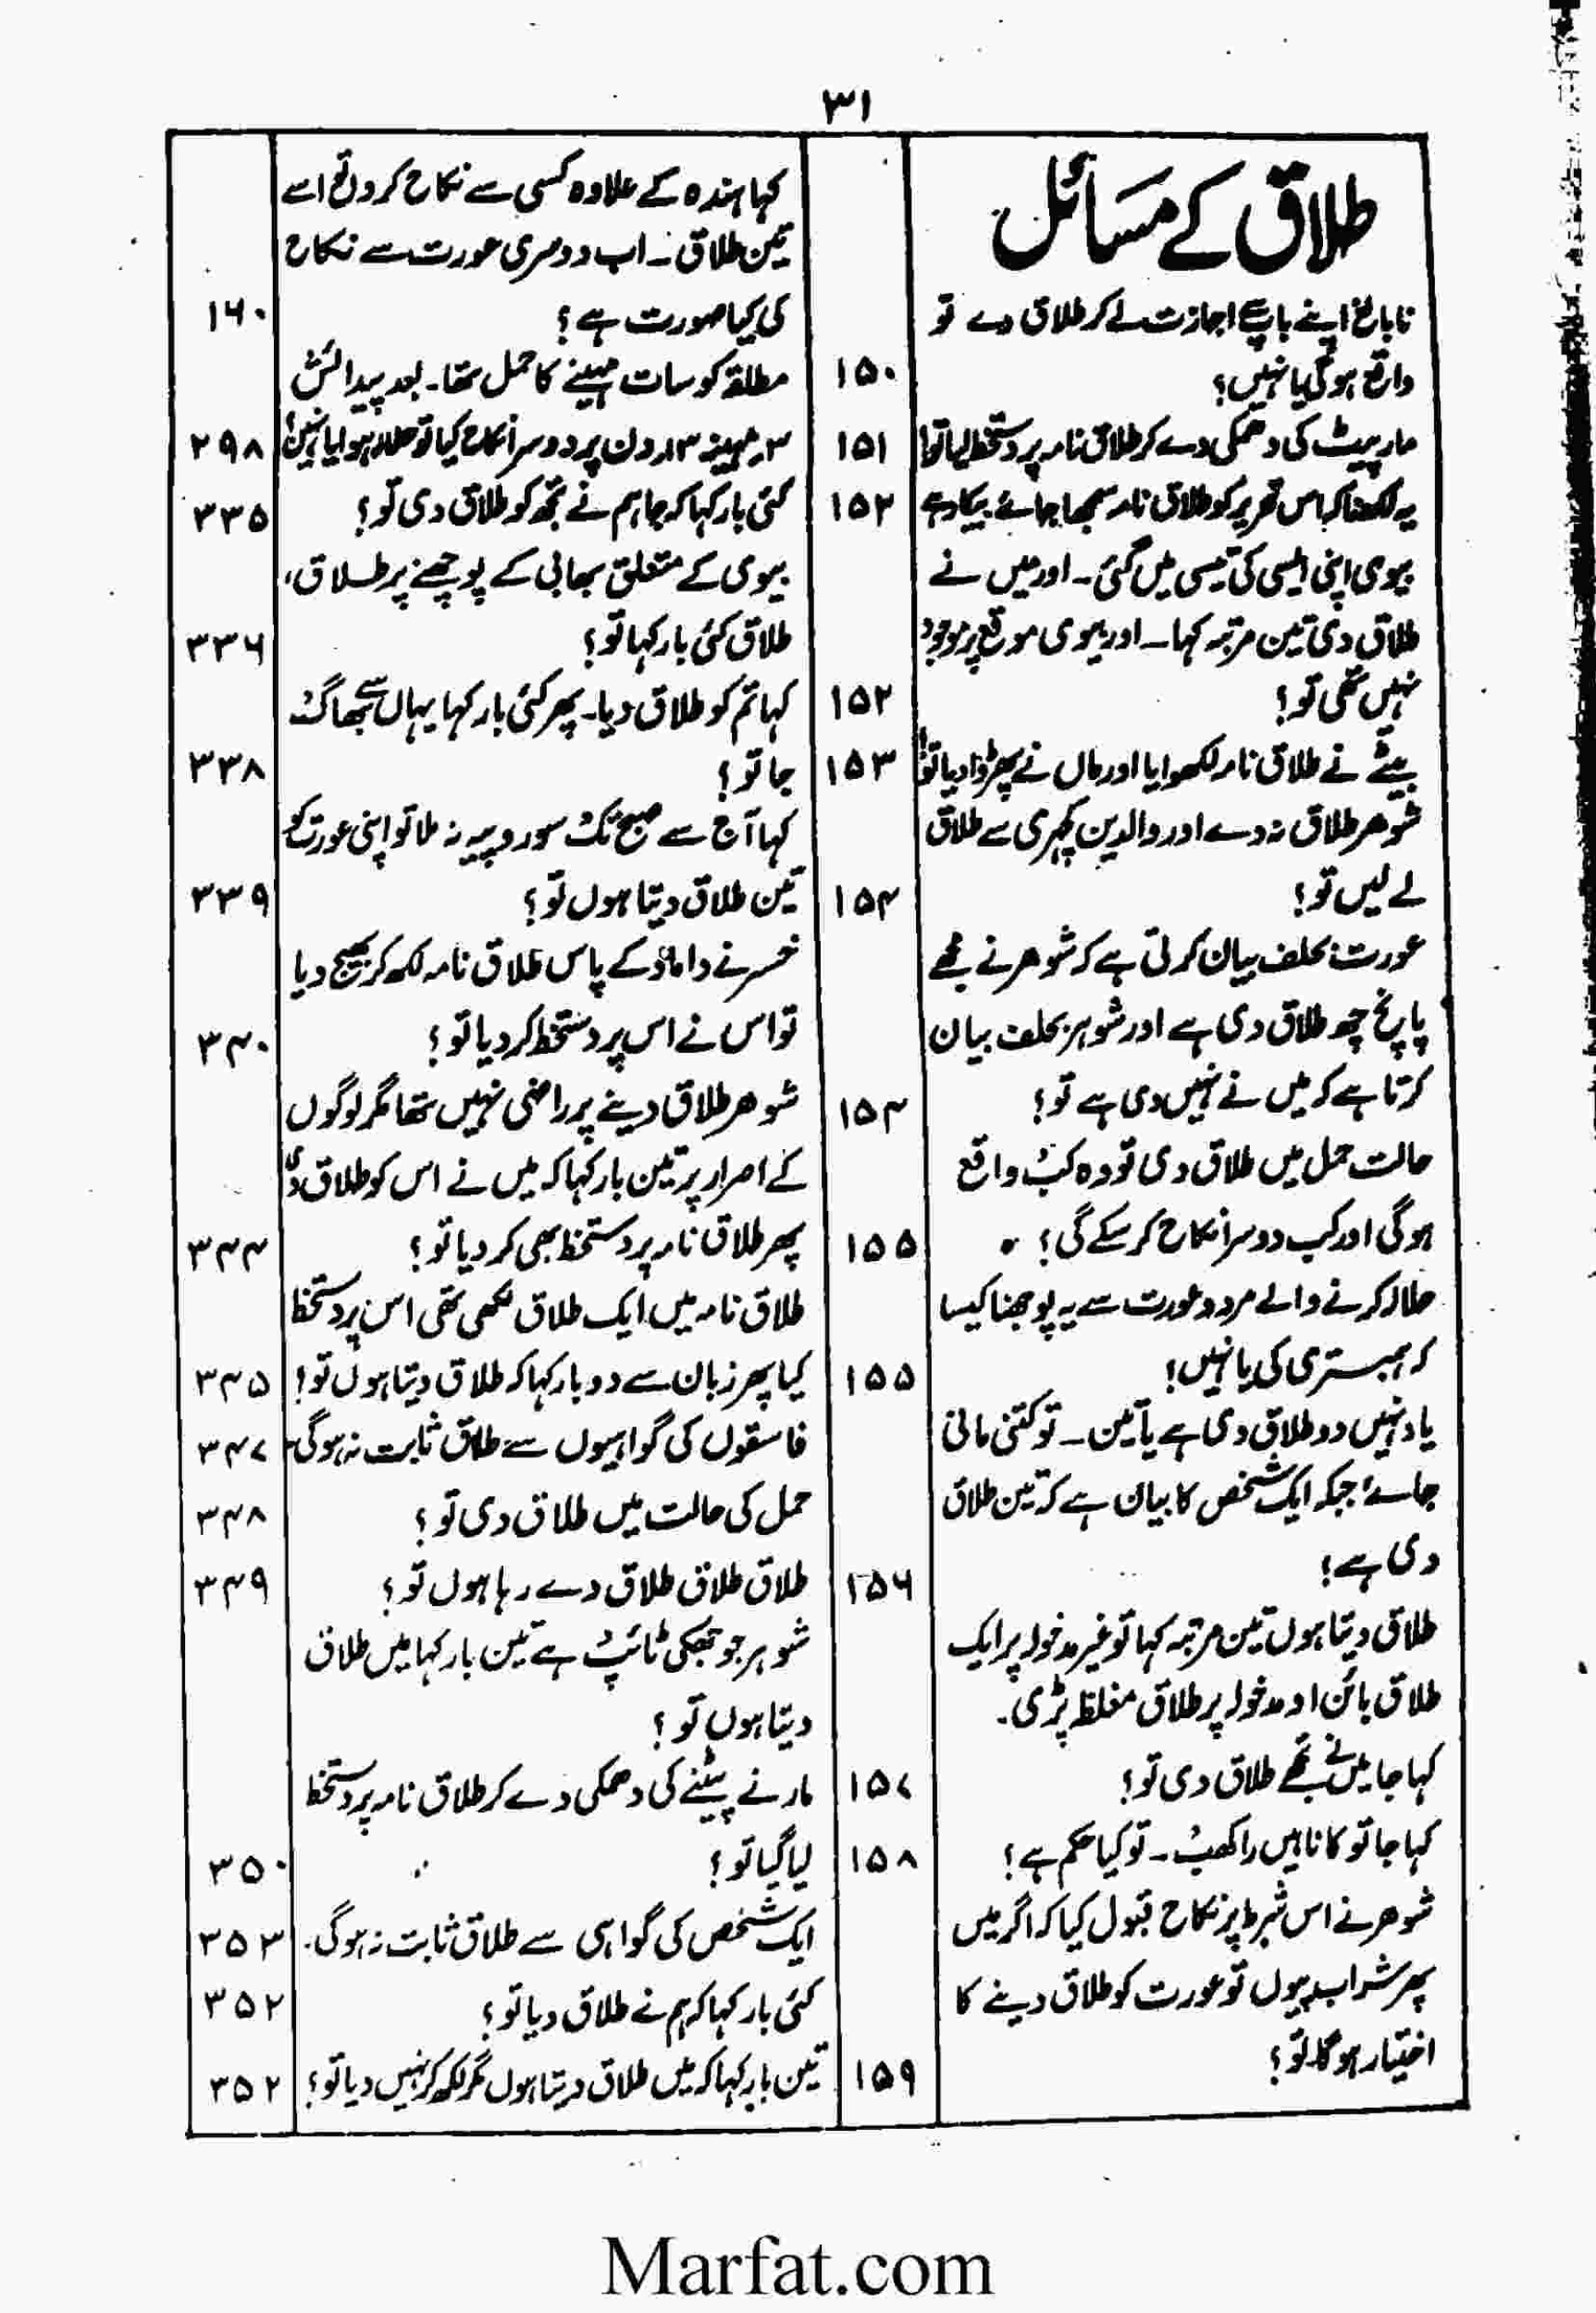 ۳۱
طلاق کے مسائل
نابالغ اپنے باپ سے اجازت لے کر طلاق دے تو
واقع ہوگی یا نہیں؟ ۱۵۰
مار پیٹ کی دھمکی دے کر طلاق نامہ پر دستخط لیا تو؟ ۱۵۱
یہ لکھنا کہ اس تحریر کو طلاق نامہ سمجھا جائے بیکار ہے ۱۵۲
بیوی اپنی ایسی کی تیسی میں گئی۔ اور میں نے
طلاق دی تین مرتبہ کہا۔ اور بیوی موقع پر موجود
نہیں تھی تو؟ ۱۵۲
بیٹے نے طلاق نامہ لکھوایا اور ماں نے پھڑوا دیا تو؟ ۱۵۳
شوھر طلاق نہ دے اور والدین کچہری سے طلاق
لے لیں تو؟ ۱۵۴
عورت بحلف بیان کرتی ہے کہ شوھر نے مجھے
پانچ چھ طلاق دی ہے اور شوہر بحلف بیان
کرتا ہے کہ میں نے نہیں دی ہے تو؟ ۱۵۴
حالت حمل میں طلاق دی تو وہ کب واقع
ہوگی اور کب دوسرا نکاح کر سکے گی؟ ۱۵۵
حلالہ کرنے والے مرد و عورت سے یہ پوچھنا کیسا
کہ ہمبستری کی یا نہیں؟ ۱۵۵
یاد نہیں دو طلاق دی ہے یا تین۔ تو کتنی مانی
جائے جبکہ ایک شخص کا بیان ہے کہ تین طلاق
دی ہے؟ ۱۵۶
طلاق دیتا ہوں تین مرتبہ کہا تو غیر مدخولہ پر ایک
طلاق بائن اور مدخولہ پر طلاق مغلظہ پڑی۔
کہا جا میں نے تجھے طلاق دی تو؟ ۱۵۷
کہا جا تو کا ناہیں راکھب۔ تو کیا حکم ہے؟ ۱۵۸
شوھر نے اس شرط پر نکاح قبول کیا کہ اگر میں
پھر شراب پیوں تو عورت کو طلاق دینے کا
اختیار ہوگا تو؟ ۱۵۹
کہا ہندہ کے علاوہ کسی سے نکاح کروں تو اسے
تین طلاق۔ اب دوسری عورت سے نکاح
کی کیا صورت ہے؟ ۱۶۰
مطلقہ کو سات مہینے کا حمل تھا۔ بعد پیدائش
۳؍ مہینہ ۱۳؍ دن پر دوسرا نکاح کیا تو حلالہ ہوا یا نہیں؟ ۲۹۸
کئی بار کہا کہ جا ہم نے تجھ کو طلاق دی تو؟ ۳۳۵
بیوی کے متعلق بھابی کے پوچھنے پر طلاق،
طلاق کئی بار کہا تو؟ ۳۳۶
کہا تم کو طلاق دیا۔ پھر کئی بار کہا یہاں سے بھاگ
جا تو؟ ۳۳۸
کہا آج سے صبح تک سو روپیہ نہ ملا تو اپنی عورت کو
تین طلاق دیتا ہوں تو؟ ۳۳۹
خسر نے داماد کے پاس طلاق نامہ لکھ کر بھیج دیا
تو اس نے اس پر دستخط کر دیا تو؟ ۳۴۰
شوھر طلاق دینے پر راضی نہیں تھا مگر لوگوں
کے اصرار پر تین بار کہا کہ میں نے اس کو طلاق دی
پھر طلاق نامہ پر دستخط بھی کر دیا تو؟ ۳۴۴
طلاق نامہ میں ایک طلاق لکھی تھی اس پر دستخط
کیا پھر زبان سے دو بار کہا کہ طلاق دیتا ہوں تو؟ ۳۴۵
فاسقوں کی گواہیوں سے طلاق ثابت نہ ہوگی۔ ۳۴۷
حمل کی حالت میں طلاق دی تو؟ ۳۴۸
طلاق طلاق طلاق دے رہا ہوں تو؟ ۳۴۹
شوہر جو جھکی ٹائپ ہے تین بار کہا میں طلاق
دیتا ہوں تو؟
مارنے پیٹنے کی دھمکی دے کر طلاق نامہ پر دستخط
لیا گیا تو؟ ۳۵۰
ایک شخص کی گواہی سے طلاق ثابت نہ ہوگی۔ ۳۵۳
کئی بار کہا کہ ہم نے طلاق دیا تو؟ ۳۵۲
تین بار کہا کہ میں طلاق دیتا ہوں مگر لکھ کر نہیں دیا تو؟ ۳۵۲
Marfat.com